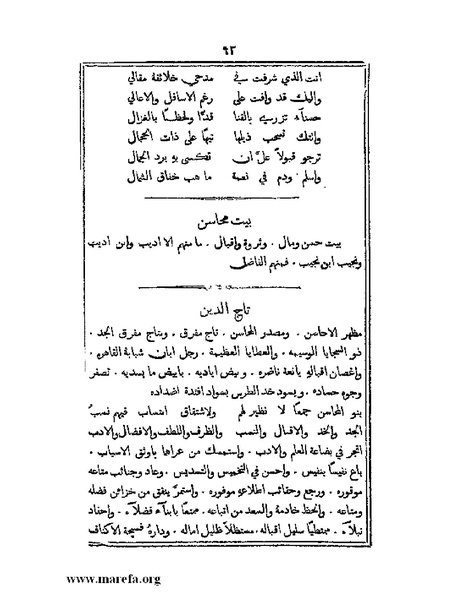 ٩٢
انت الذي شرفت في مدحي خلائقهُ مقالي
واليك قد وافت على رغم الاسافل والاعالي
حسناء تزري بالقنا قدًّا ولحظًا بالغزال
واتتك تسحب ذيلها تيهًا على ذات الحجال
ترجو قبولاً علَّ ان تكتسى بهِ برد الجمال
واسلم ودم في نعمة ما هب خفاق الشمال
بيت محاسن
بيت حسن ومال . وثروة واقبال . ما منهم الا اديب وابن اديب
ونجيب ابن نجيب . فمنهم الفاضل
تاج الدين
مظهر الاحاسن . ومصدر المحاسن . تاج مفرقي . وبتاج مفرق الجد .
ذو السجايا الوسيمه . والعطايا العظيمة . رجل ابان شبابة القاهره .
واغصان اقبالهِ يانعة ناضره . وبيض اياديه . بابيض ما يسديه . تصفر
وجوه حساده . ويسود خد الطرس بسواد افئدة اضداده
بنو المحاسن جمعًا لا نظير لهم ولاشتقاق انتساب فيهم نسبُ
الجد والخد والاقبال والنسب والظرف واللطف والافضال والادب
اتجر في بضاعة العلم والادب . واستمسك من عراها باوثق الاسباب .
باع نفيسًا بنفيس . واحسن في التخميس والتسديس . وعاد وجنائب متاعه
موقوره . ورجع وحقائب اطلاعهِ موفوره . واستمرَّ ينفق من خزائن فضله
ومتاعه . والحظ خادمهُ والسعد من اتباعه . ممتعًا بابناء فضلاء . واحفاد
نبلاء . ممتطيًا سليل اقباله . مستظلاً ظليل اماله . ودارهُ فسيحة الاكناف
www.marefa.org